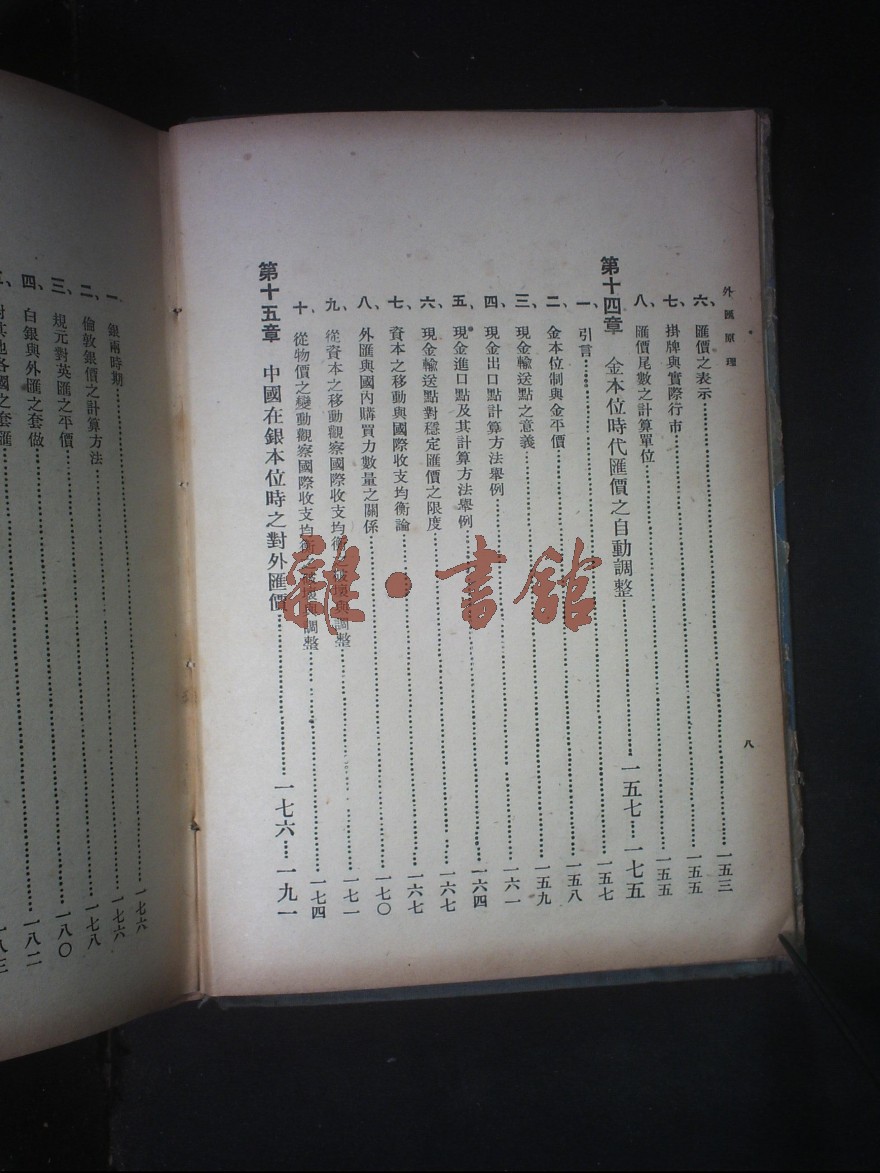 外匯原理
八
六、匯價之表示 一五三
七、掛牌與實際行市 一五五
八、匯價尾數之計算單位 一五五
第十四章 金本位時代匯價之自動調整 一五七…一七五
一、引言 一五七
二、金本位制與金平價 一五八
三、現金輸送點之意義 一五九
四、現金出口點計算方法舉例 一六一
五、現金進口點及其計算方法舉例 一六四
六、現金輸送點對穩定匯價之限度 一六七
七、資本之移動與國際收支均衡論 一六七
八、外匯與國內購買力數量之關係 一七〇
九、從資本之移動觀察國際收支均衡之破壞與調整 一七一
十、從物價之變動觀察國際收支均衡之破壞與調整 一七四
第十五章 中國在銀本位時之對外匯價 一七六…一九一
一、銀兩時期 一七六
二、倫敦銀價之計算方法 一七八
三、規元對英匯之平價 一八〇
四、白銀與外匯之套做 一八二
對其他各國之套匯 一八三
雜·書館